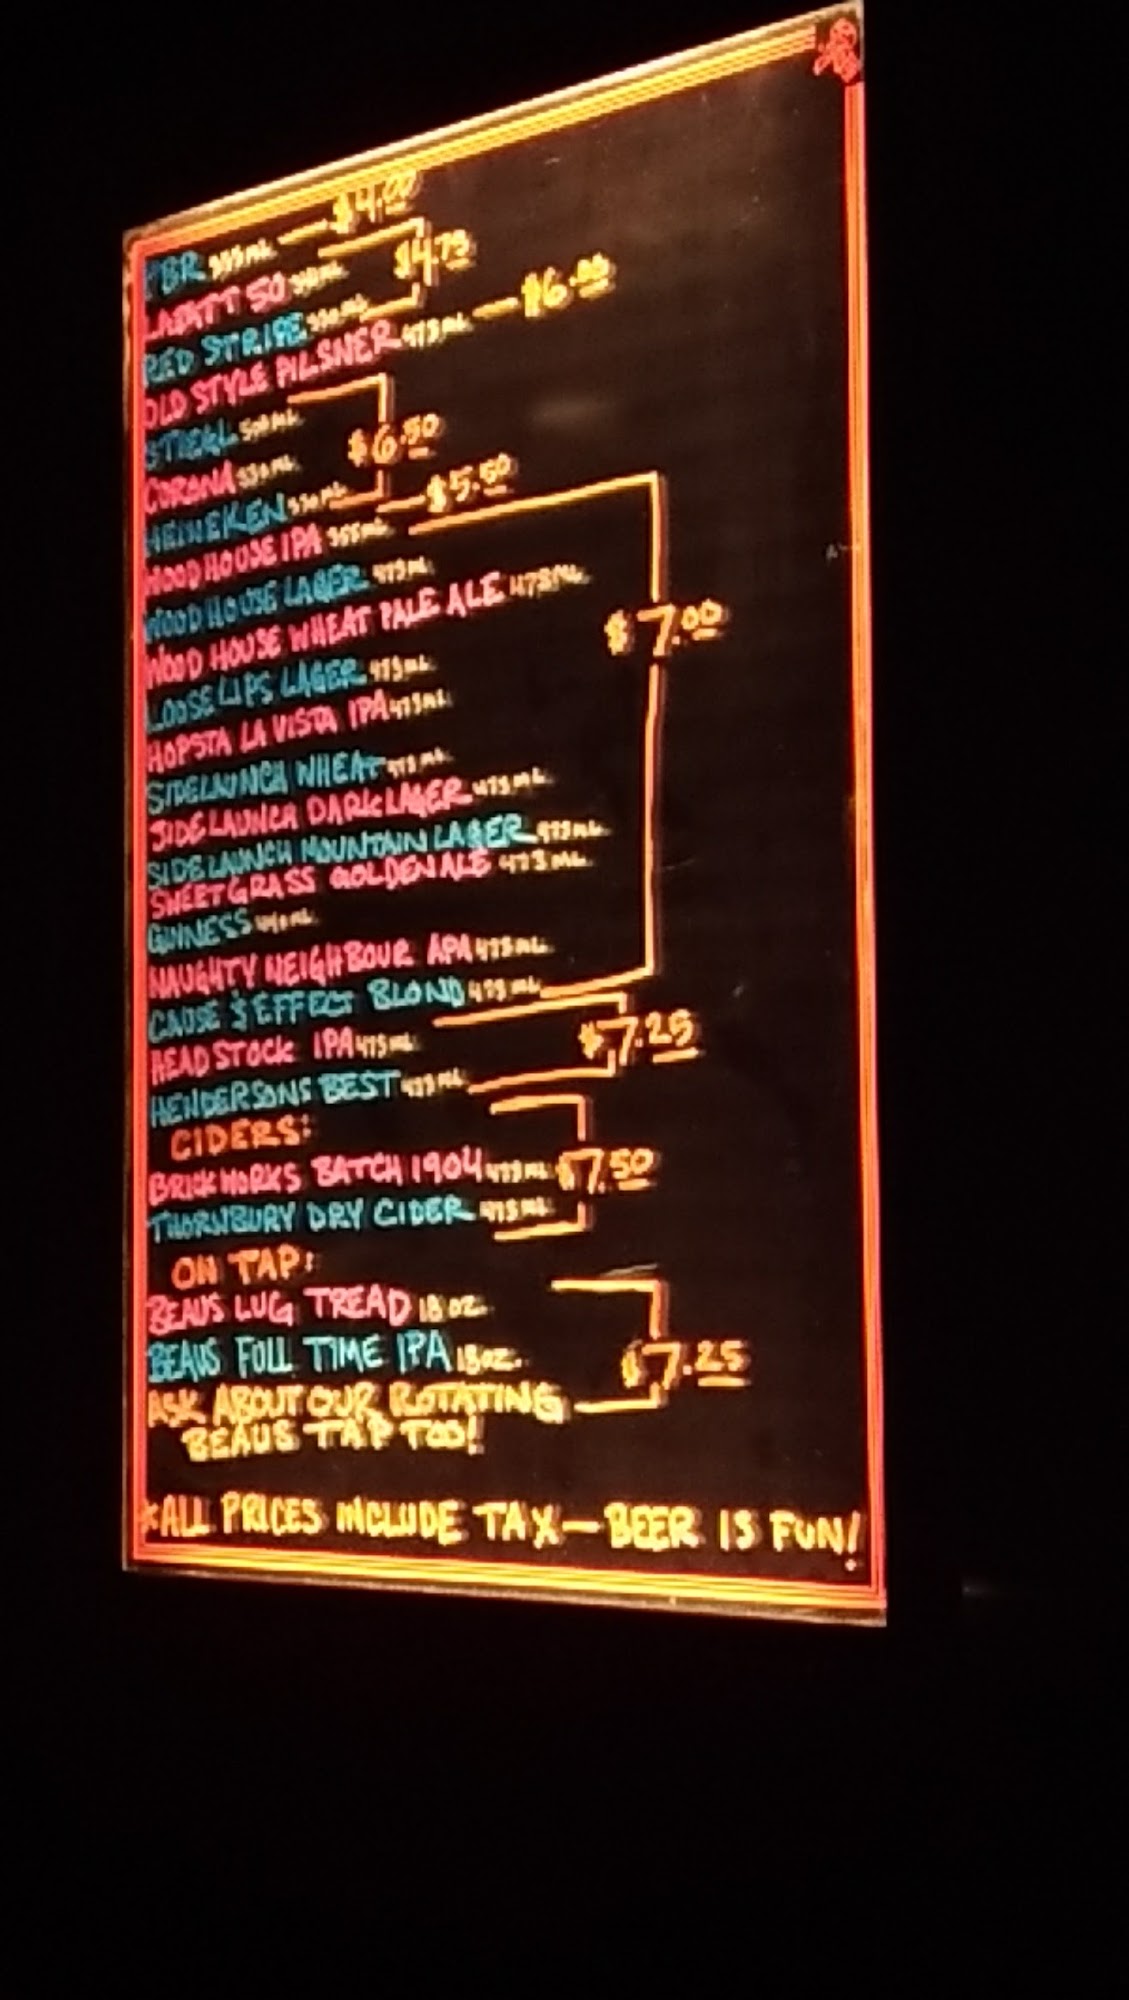 PBR 355ML — $4.00
LABATT 50 341ML
$4.75
RED STRIPE 330ML
OLD STYLE PILSNER 473ML — $6.00
STIEGL 500ML
CORONA 330ML $6.50
HEINEKEN 330ML
WOOD HOUSE IPA 355ML — $5.50
WOOD HOUSE LAGER 473ML
WOOD HOUSE WHEAT PALE ALE 473ML
$7.00
LOOSE LIPS LAGER 473ML
HOPSTA LA VISTA IPA 473ML
SIDELAUNCH WHEAT 473ML
SIDELAUNCH DARK LAGER 473ML
SIDELAUNCH MOUNTAIN LAGER 473ML
SWEETGRASS GOLDEN ALE 473ML
GUINESS 440ML
NAUGHTY NEIGHBOUR APA 473ML
CAUSE & EFFECT BLOND 473ML
HEADSTOCK IPA 473ML $7.25
HENDERSONS BEST 473ML
CIDERS:
BRICKWORKS BATCH 1904 473ML $7.50
THORNBURY DRY CIDER 473ML
ON TAP:
BEAUS LUG TREAD 18 OZ.
BEAUS FULL TIME IPA 18 OZ. $7.25
ASK ABOUT OUR ROTATING
BEAUS TAP TOO!
*ALL PRICES INCLUDE TAX — BEER IS FUN!